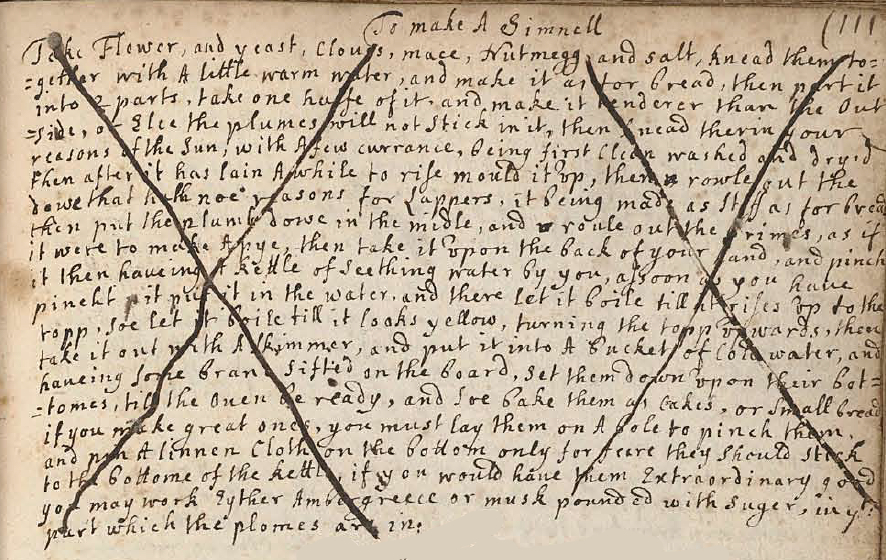 To make A Simnell (111
Take Flower, and yeast, Cloves, mace, Nutmegg, and salt, knead them to=
=gether with A little warm water, and make it as for bread, then part it
into 2 parts, take one halfe of it, and make it tenderer than the Out
=side, or Else the plumes will not Stick in it, then knead therin your
reasons of the Sun, with A few currance, being first Clean washed and dryd
then after it has lain A while to rise mould it vp, then rowle out the
dowe that hath noe reasons for Lappers, it being made as Stiff as for bread
then put the plumb dowe in the midle, and roule out the rimes, as if
it were to make A pye, then take it vpon the back of your hand, and pinch
it then haveing A kettle of Seething water by you, assoon as you have
pincht it put it in the water, and there let it boile till it rises vp to the
topp, Soe let it boile till it looks yellow, turning the topp downwards, then
take it out with A Skimmer, and put it into A Bucket of Cold water, and
haveing Some brand Sifted on the board, Set them down vpon their bot=
=tomes, till the Oven be ready, and Soe bake them as Cakes, or Small bread
if you make great ones, you must lay them on A to pinch them,
and pin A linnen Cloth on the bottom only for feare they Should Stick
to the bottome of the kettle, if you would have them Extraordinary good
you may work Eyther Ambergreece or musk pounded with Suger, in yt
part which the plomes are in.